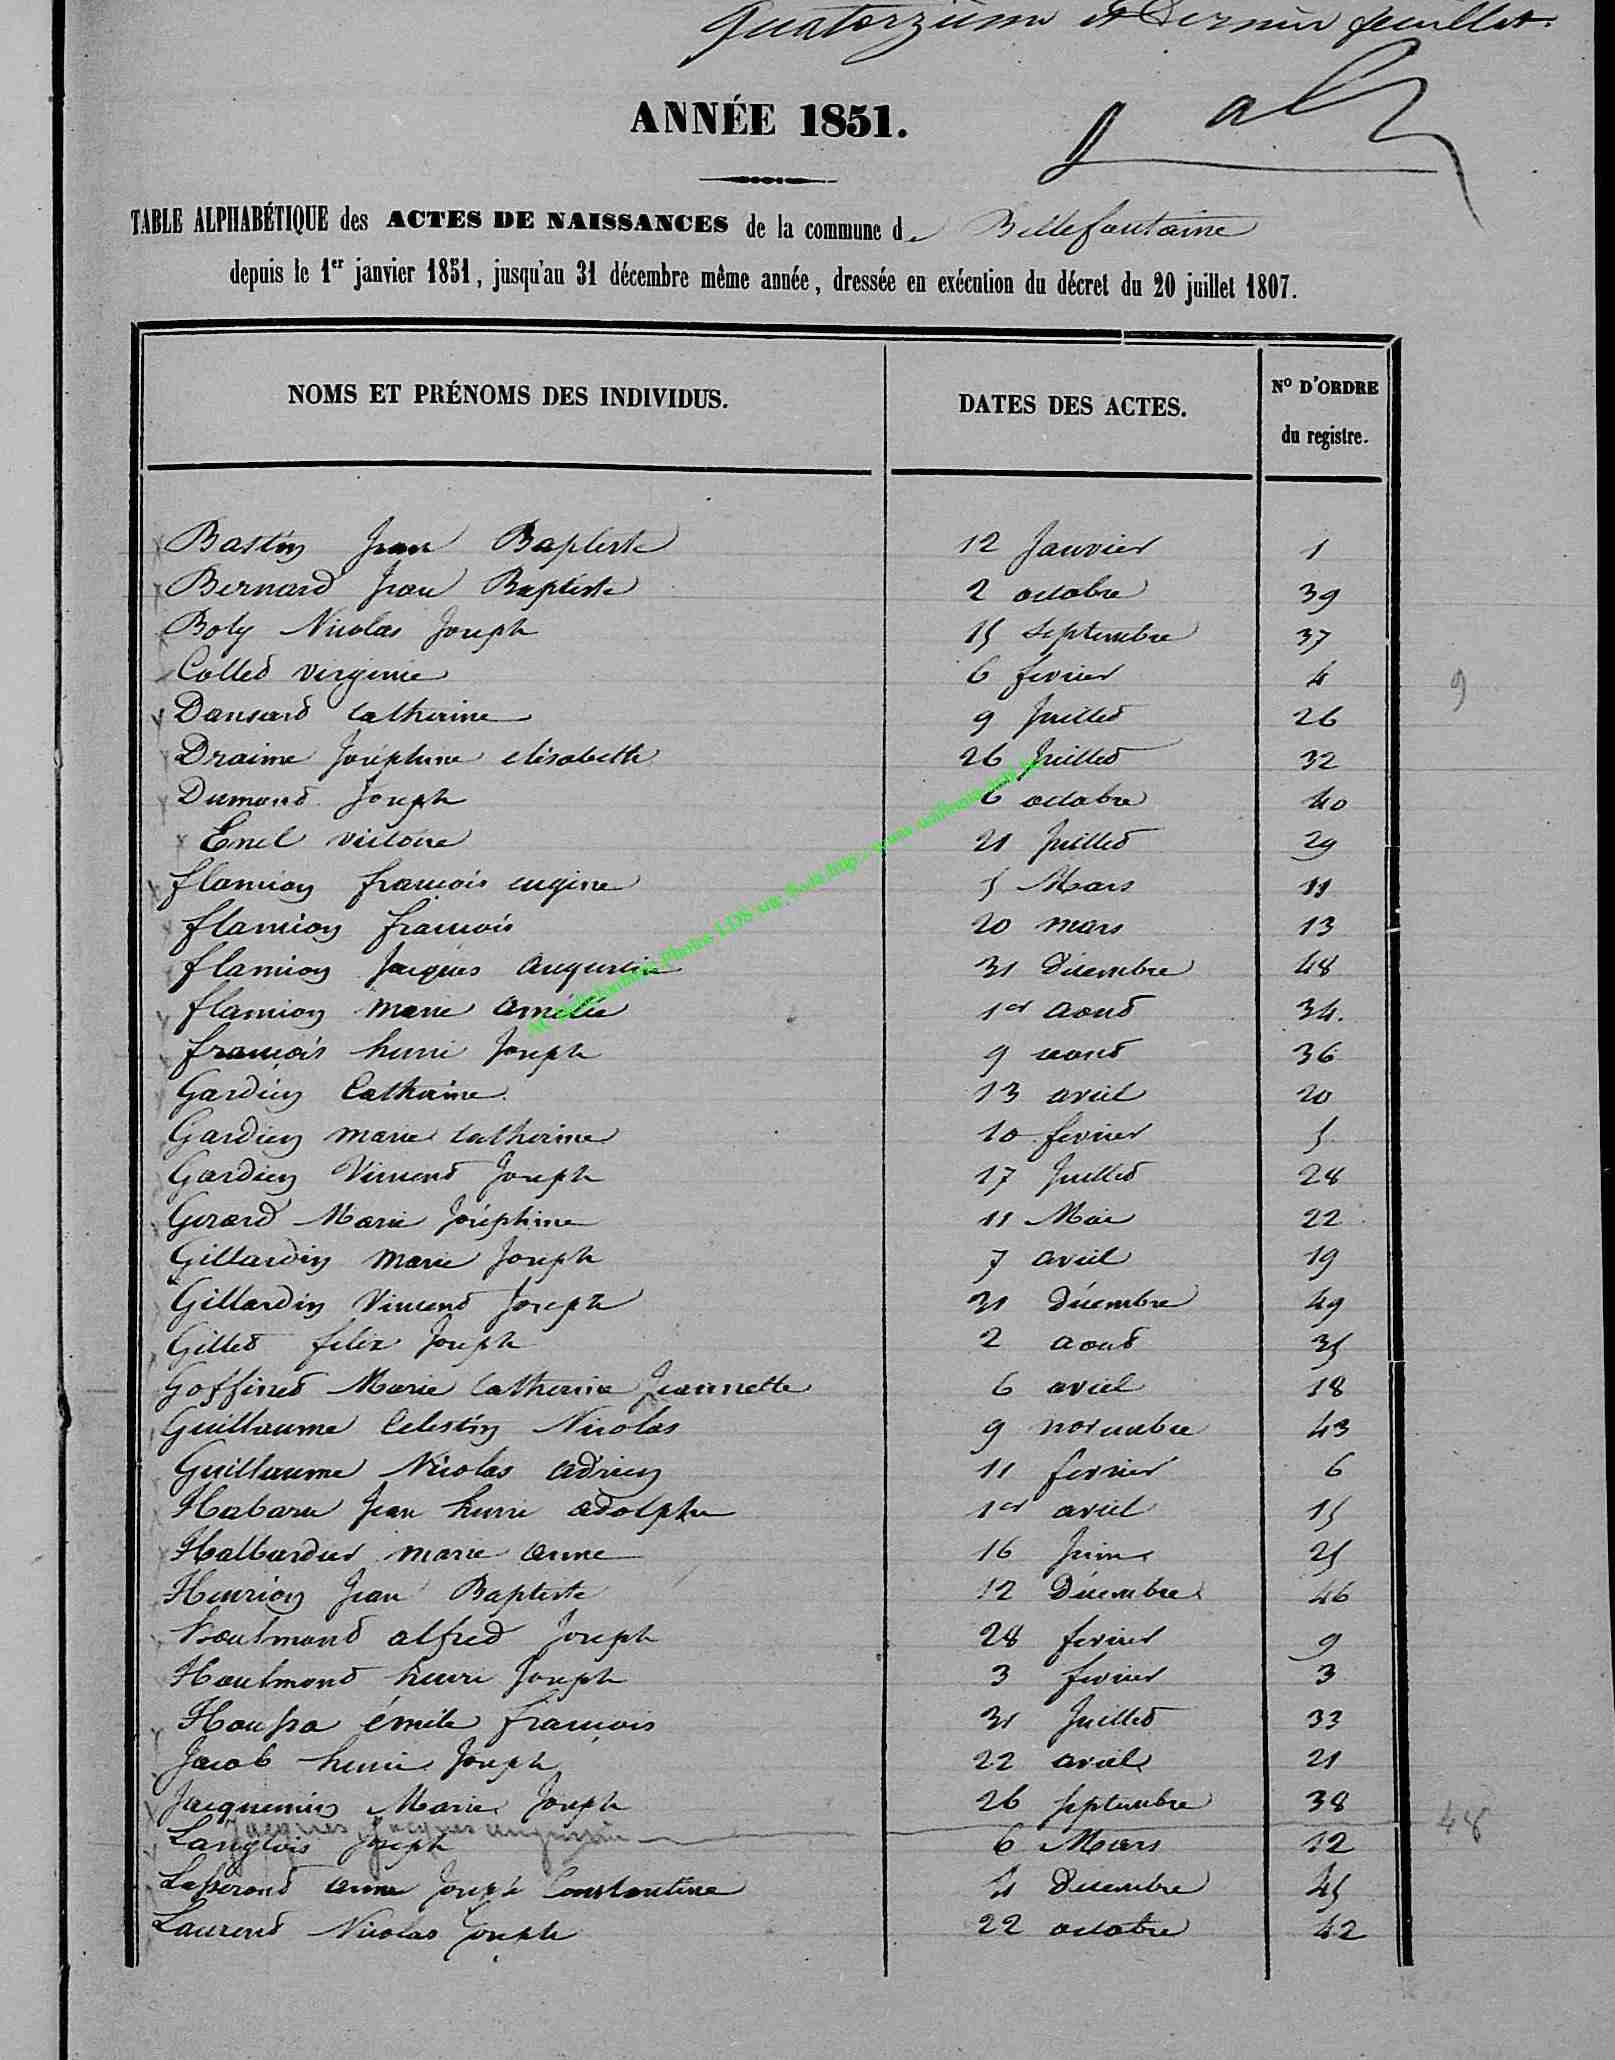 Quatorzième et Dernier feuillet.
ANNÉE 1851.
TABLE ALPHABÉTIQUE des ACTES DE NAISSANCES de la commune de Bellefontaine
depuis le 1er janvier 1851, jusqu'au 31 décembre même année, dressée en exécution du décret du 20 juillet 1807.
NOMS ET PRÉNOMS DES INDIVIDUS. DATES DES ACTES. No D'ORDRE du registre.
Bastin Jean Baptiste 12 Janvier 1
Bernard Jean Baptiste 2 octobre 39
Boly Nicolas Joseph 15 Septembre 37
Collet virginie 6 fevrier 4 9
Dansard Catherine 9 Juillet 26
Draime Joséphine élisabeth 26 Juillet 32
Dumont Joseph 6 octobre 40
Enel victoire 21 Juillet 29
flamion françois eugene 5 Mars 11
flamion françois 20 mars 13
flamion Jacques augustin 31 Décembre 48
flamion marie amélie 1er aout 34.
françois henri Joseph 9 aout 36
Gardien Catherine 13 avril 20
Gardien marie catherine 10 fevrier 5
Gardien Vincent Joseph 17 Juillet 28
Gerard Marie Joséphine 11 Mai 22
Gillardin marie Joseph 7 avril 19
Gillardin Vincent Joseph 31 Décembre 49
Gillet felix Joseph 2 aout 35
Goffinet Marie Catherine Jeannette 6 avril 18
Guillaume Celestin Nicolas 9 novembre 43
Guillaume Nicolas adrien 11 fevrier 6
Habaru Jean henri adolphe 1er avril 15
Halbardier marie anne 16 Juin 25
Henrion Jean Baptiste 12 Décembre 46
houlmont alfred Joseph 28 fevrier 9
Houlmont henri Joseph 3 fevrier 3
Houssa émile françois 31 Juillet 33
Jacob henri Joseph 22 avril 21
Jacquemin Marie Joseph 26 septembre 38
Jacques Jacques augustin 48
Langlois Joseph 6 Mars 12
Lasserand anne Joseph Constantine Decembre 45
Laurent Nicolas Joseph 22 octobre 42